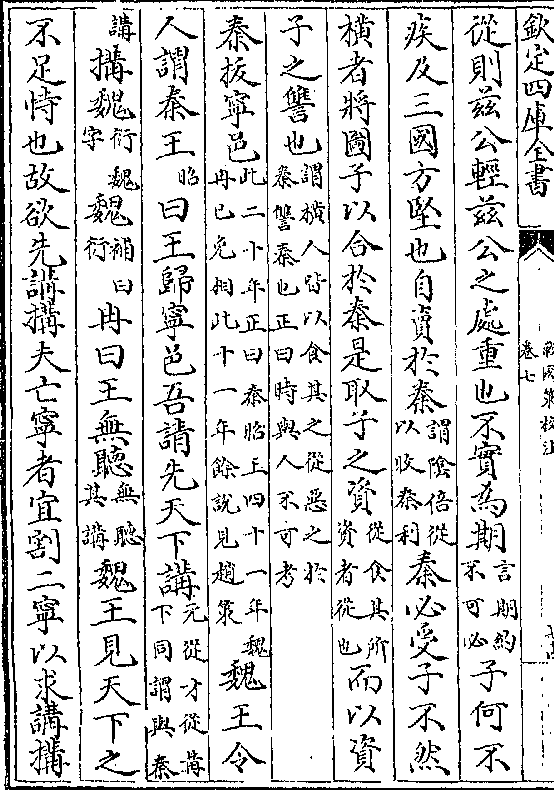 欽定四庫全書
戰國策校注
卷七
從則兹公輕兹公之處重也不實為期言期約不可必子何不
疾及三國方堅也自賣於秦謂陰倍從以收秦利秦必受子不然
橫者將圖子以合於秦是取子之資從食其所資者從也而以資
子之讐也謂橫人皆以食其之從惡之於秦讐秦也正曰時與人不可考
秦拔寧邑此二十年正曰秦昭王四十一年魏冉已免相此十一年餘說見趙策魏王令
人謂秦王昭曰王歸寧邑吾請先天下講元從才從冓下同謂與秦
講搆魏衍魏字魏補曰衍冉曰王無聽無聽其講魏王見天下之
不足恃也故欲先講搆夫亡寧者宜割二寧以求講搆